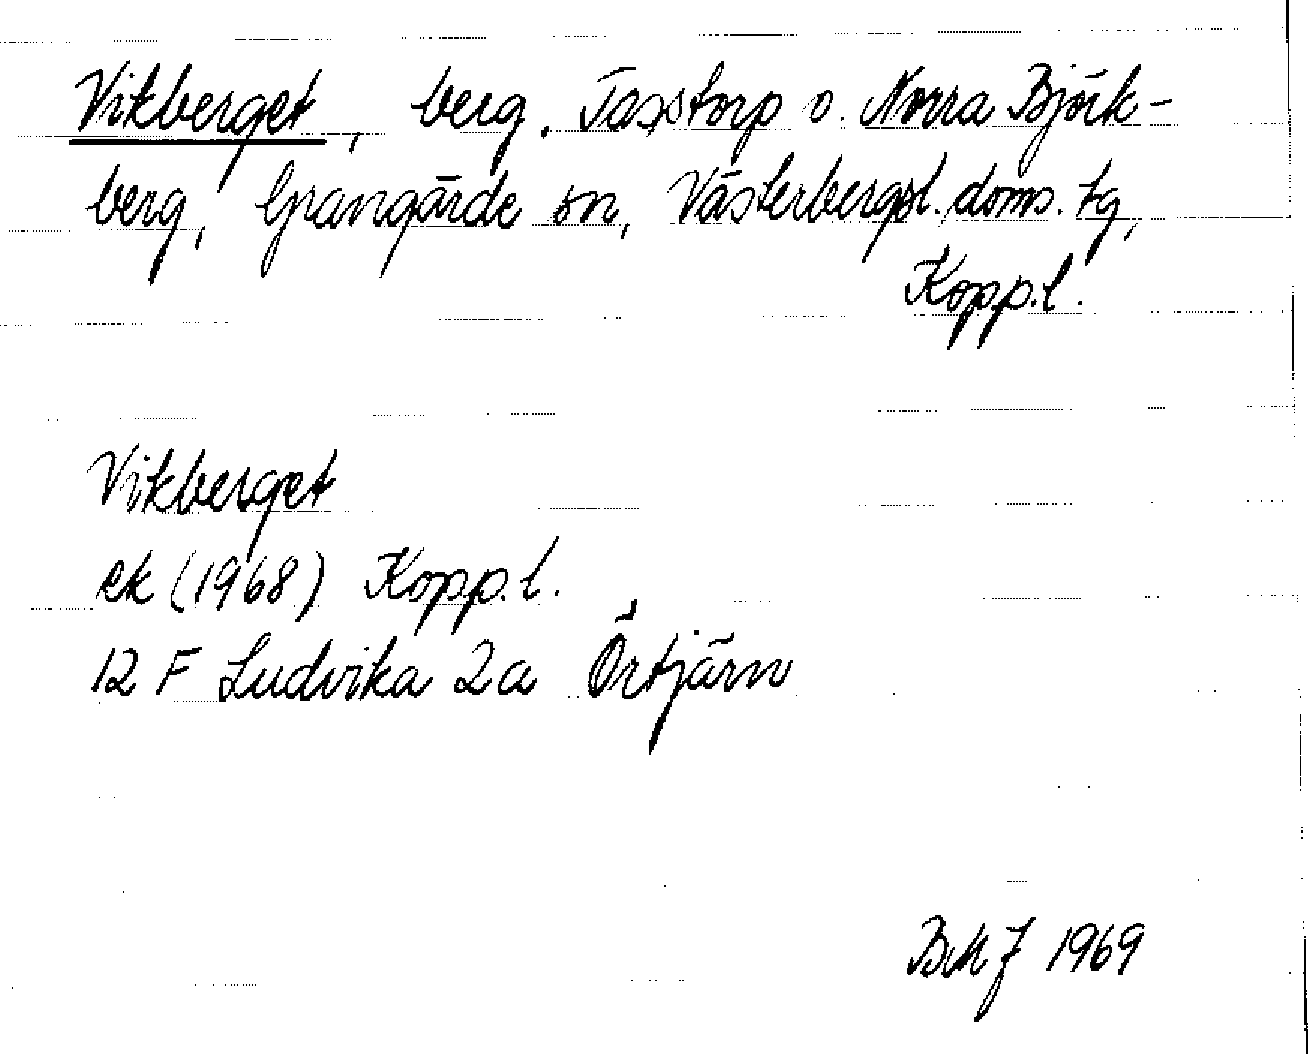 Vikberget, berg. Taxstorp o. Norra Björk-
berg, Grangärde sn, Västerbergsl. doms. tg,
Kopp.l.
Vikberget
ek (1968) Kopp.l.
12 F Ludvika 2a Örtjärn
BMJ 1969